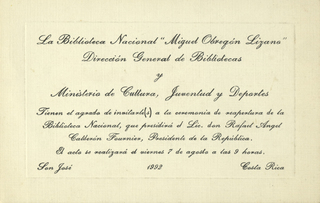 La Biblioteca Nacional "Miguel Obregón Lizano"
Dirección General de Bibliotecas
y
Ministerio de Cultura, Juventud y Deportes
Tienen el agrado de invitarle(s) a la ceremonia de reapertura de la
Biblioteca Nacional, que presidirá el Lic. don Rafael Angel
Calderón Fournier, Presidente de la República.
El acto se realizará el viernes 7 de agosto a las 9 horas.
San José 1992 Costa Rica